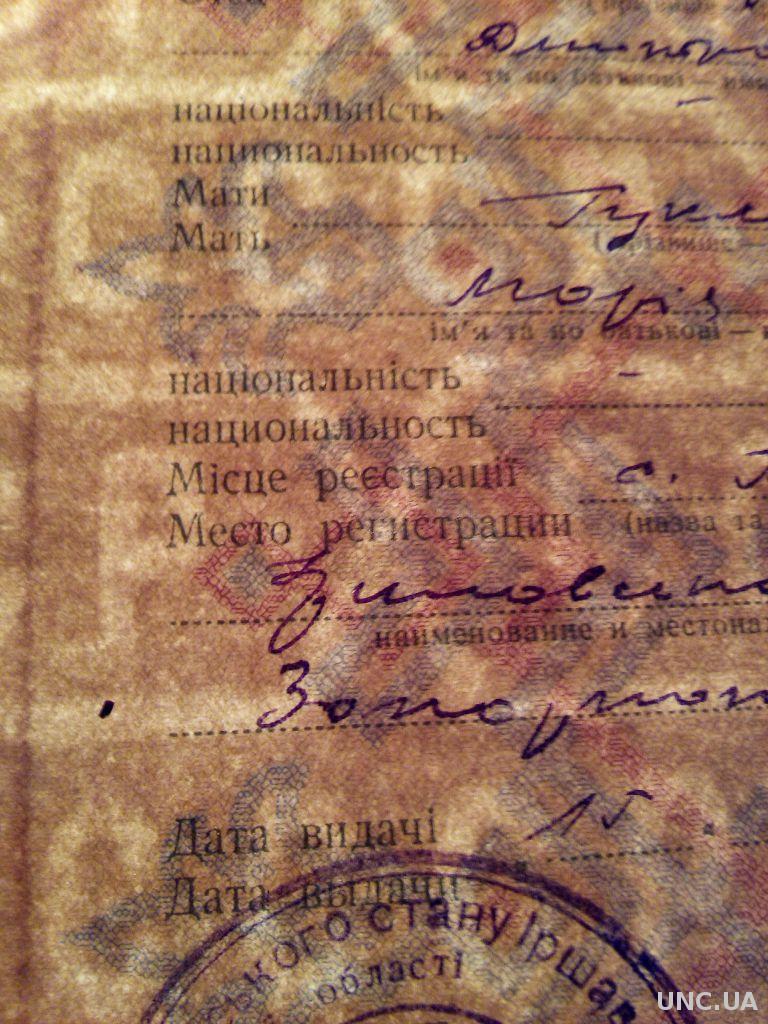 (прізвище
ім'я та по батькові — имя
національність -
национальность
Мати
Мать (прізвище —
Марія
ім'я та по батькові —
національність -
национальность
Місце реєстрації с.
Место регистрации (назва та
наименование и местона
Дата видачі 15
Дата выдачи
ького стану Іршав
області
UNC.UA